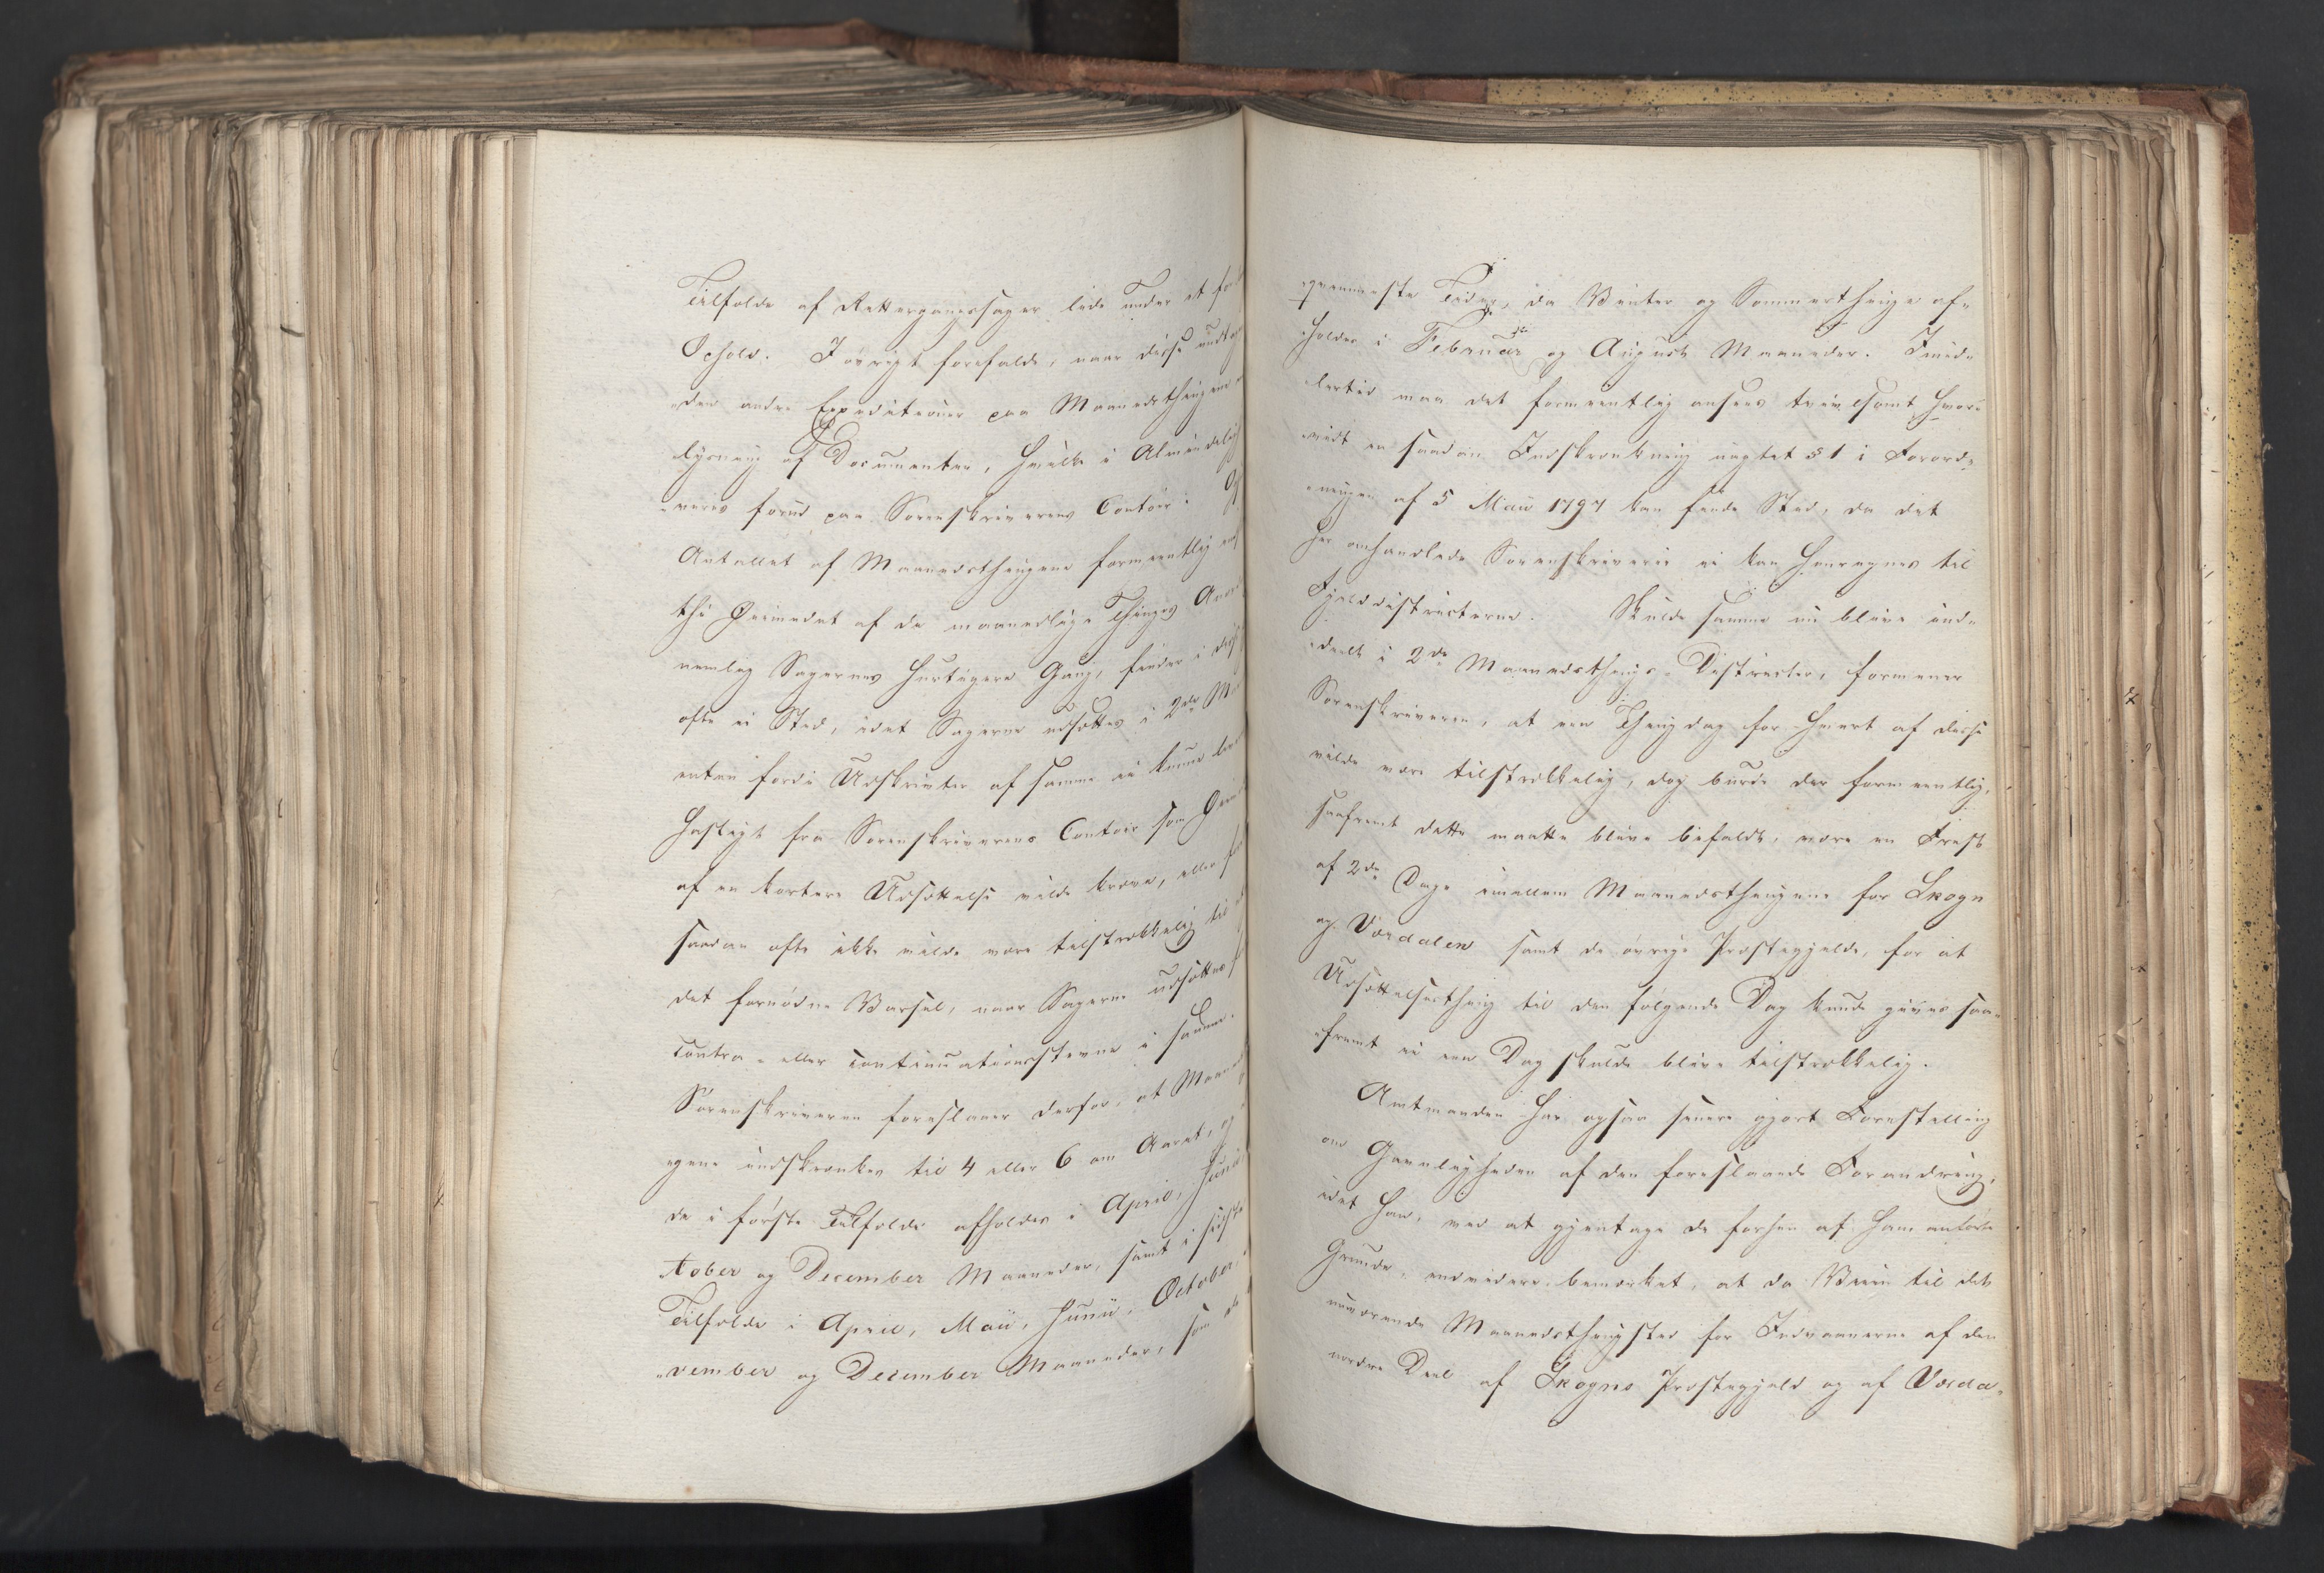 Tilfælde af Rettergangssager lide under et
Ophold. I øvrigt forefalde, naar disse
den andre Expeditioner paa Maanedsthingene
lysning af Documenter, hvilke i Almindelighed
-veres forud paa Sorenskriverens Contoir.
Antallet af Maanedsthingene formeentlig
thi Øiemedet af de maanedlige Thinges
nemlig Sagernes hurtigere Gang, finder i
ofte ei Sted, idet Sagerne udsættes i 2de
enten fordi Udskrivter af samme ei kunne
hastigt fra Sorenskriverens Contoir som
af en kortere Udsættelse vilde kræve, eller
saadan ofte ikke vilde være tilstrækkelig til
det fornødne Varsel, naar Sagerne udsættes
Contra- eller Continuationsstevne i samme.
Sorenskriveren foreslaaer derfor, at
-gene indskrænkes til 4 eller 6 om Aaret, og
de i første Tilfælde afholdes i April, Junii
-tober og December Maaneder, samt i sidste
Tilfælde i April, Maii, Junii, October,
-vember og December Maaneder, som de
-qvemmeste Tider, da Vinter og Sommerthinge af-
-holdes i Februar og August Maaneder. Imid-
-lertid maa det formeentlig ansees tvivlsomt hvor-
-vidt en saadan Indskrænkning uagtet § 1 i Forord-
-ningen af 5 Maii 1797 kan finde Sted, da det
her omhandlede Sorenskriverie ei kan henregnes til
Fjelddistricterne. Skulde samme nu blive ind-
-deelt i 2de Maanedsthings-Districter, formener
Sorenskriveren, at een Thingdag for hvert af disse
vilde være tilstrækkelig, dog burde der formeentlig,
saafremt dette maatte blive befalet, være en Frist
af 2de Dage imellem Maanedsthingene for Skogn
og Værdalen samt de øvrige Præstegjelde, for at
Udsættelsesthing til den følgende Dag kunde gives saa-
-fremt ei een Dag skulde blive tilstrækkelig.
Amtmanden har ogsaa senere gjort Forestilling
om Gavnligheden af den foreslaaede Forandring,
idet han, ved at gjentage de forhen af ham anførte
Grunde, endvidere bemærket, at da Veien til det
nuværende Maanedsthingsted for Indvaanerne af den
nordre Deel af Skogns Præstegjeld og af Værda-